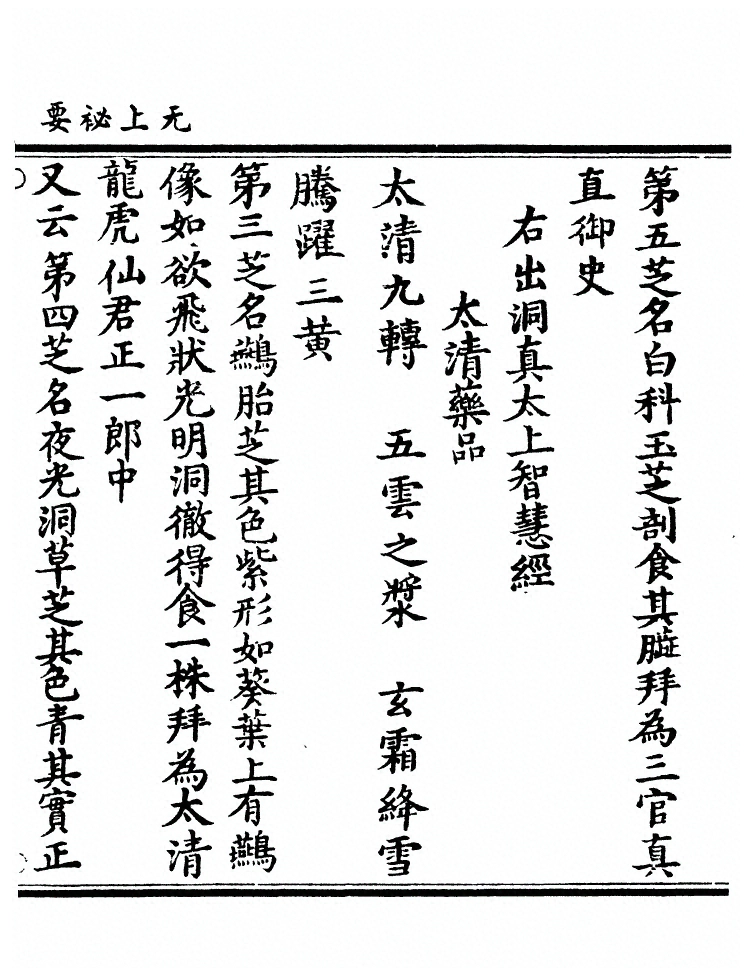 无上祕要
第五芝名白科玉芝剖食其拜為三官真
直御史
右出洞真太上智慧經
太清藥品
太清九轉　五雲之漿　玄霜絳雪
騰躍三黃
第三芝名䴏胎芝其色紫形如葵葉上有䴏
像如欲飛狀光明洞徹得食一株拜為太清
龍虎仙君正一郎中
又云第四芝名夜光洞草芝其色青其實正